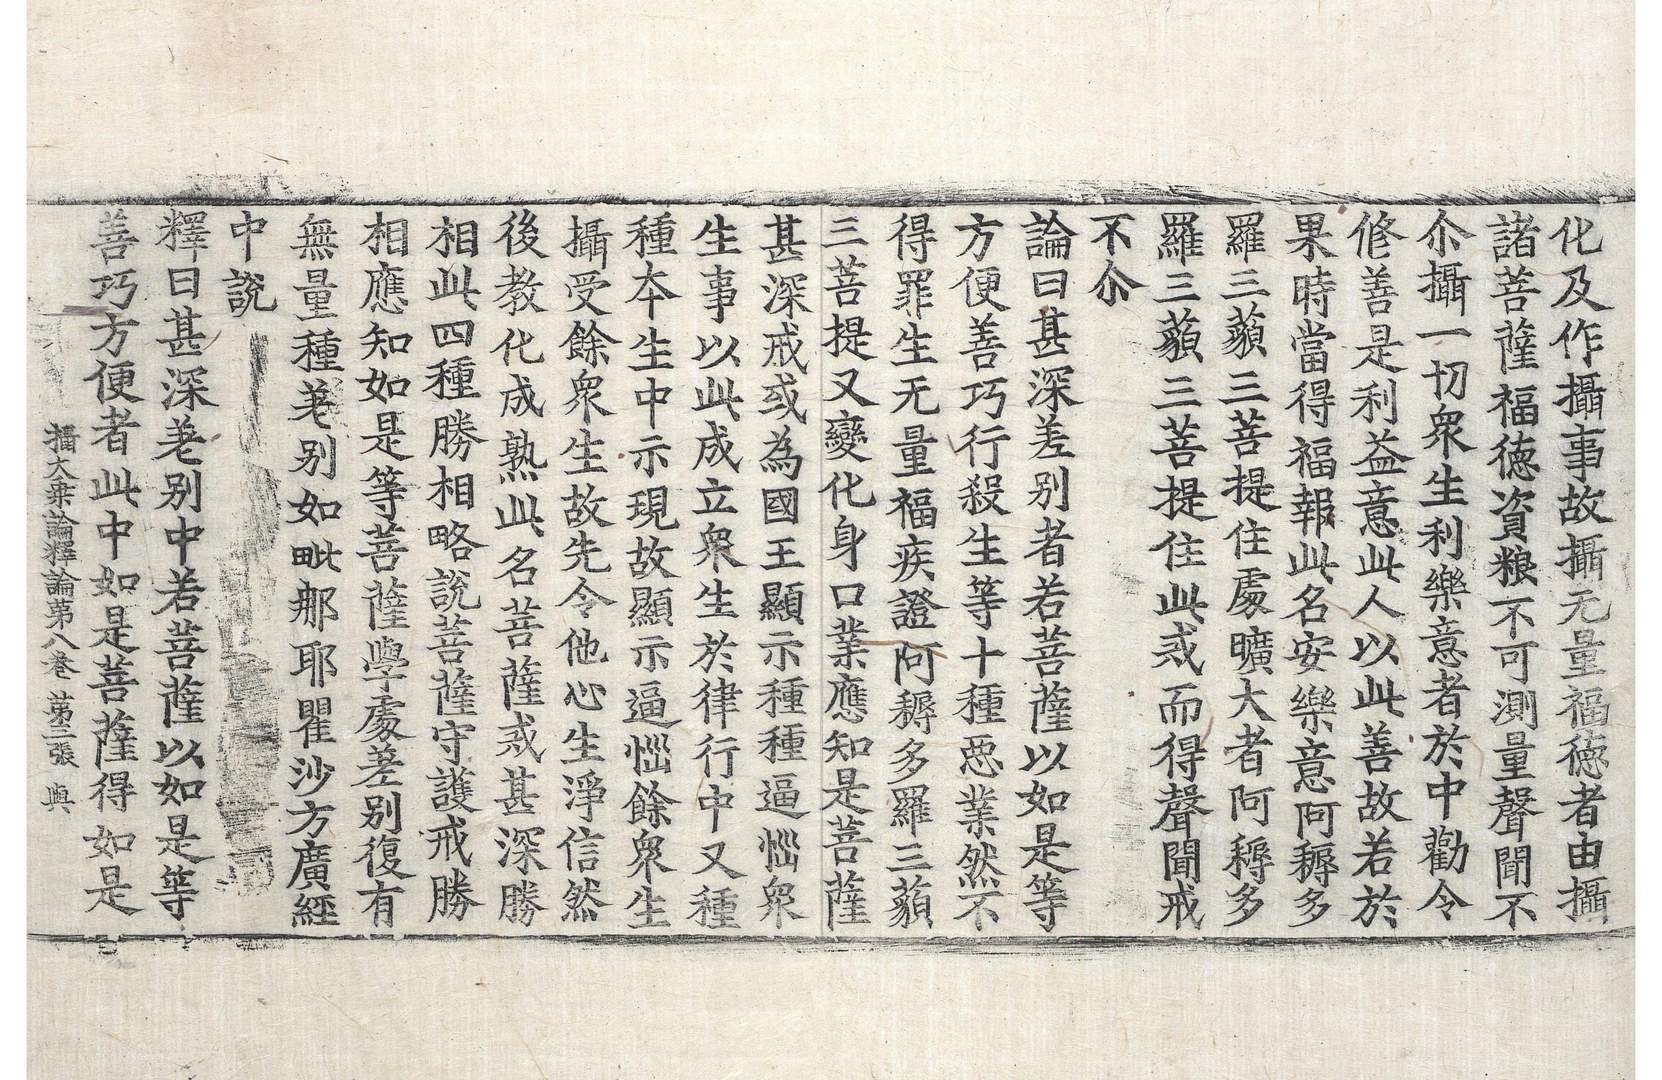 化及作攝事故攝无量福德者由攝
諸菩薩福德資粮不可測量聲聞不
尒攝一切衆生利樂意者於中勸令
修善是利益意此人以此善故若於
果時當得福報此名安樂意阿耨多
羅三藐三菩提住處曠大者阿耨多
羅三藐三菩提住此戒而得聲聞戒
不尒
論曰甚深差别者若菩薩以如是等
方便善巧行殺生等十種惡業然不
得罪生无量福疾證阿耨多羅三藐
三菩提又變化身口業應知是菩薩
甚深戒或為國王顯示種種逼惱衆
生事以此成立衆生於律行中又種
種本生中示現故顯示逼惱餘衆生
攝受餘衆生故先令他心生淨信然
後教化成熟此名菩薩戒甚深勝
相此四種勝相略說菩薩守護戒勝
相應知如是等菩薩學處差别復有
無量種差别如毗那耶瞿沙方廣經
中說
釋曰甚深差别中若菩薩以如是等
善巧方便者此中如是菩薩得如是
攝大乘論釋論第八卷 第三張 與